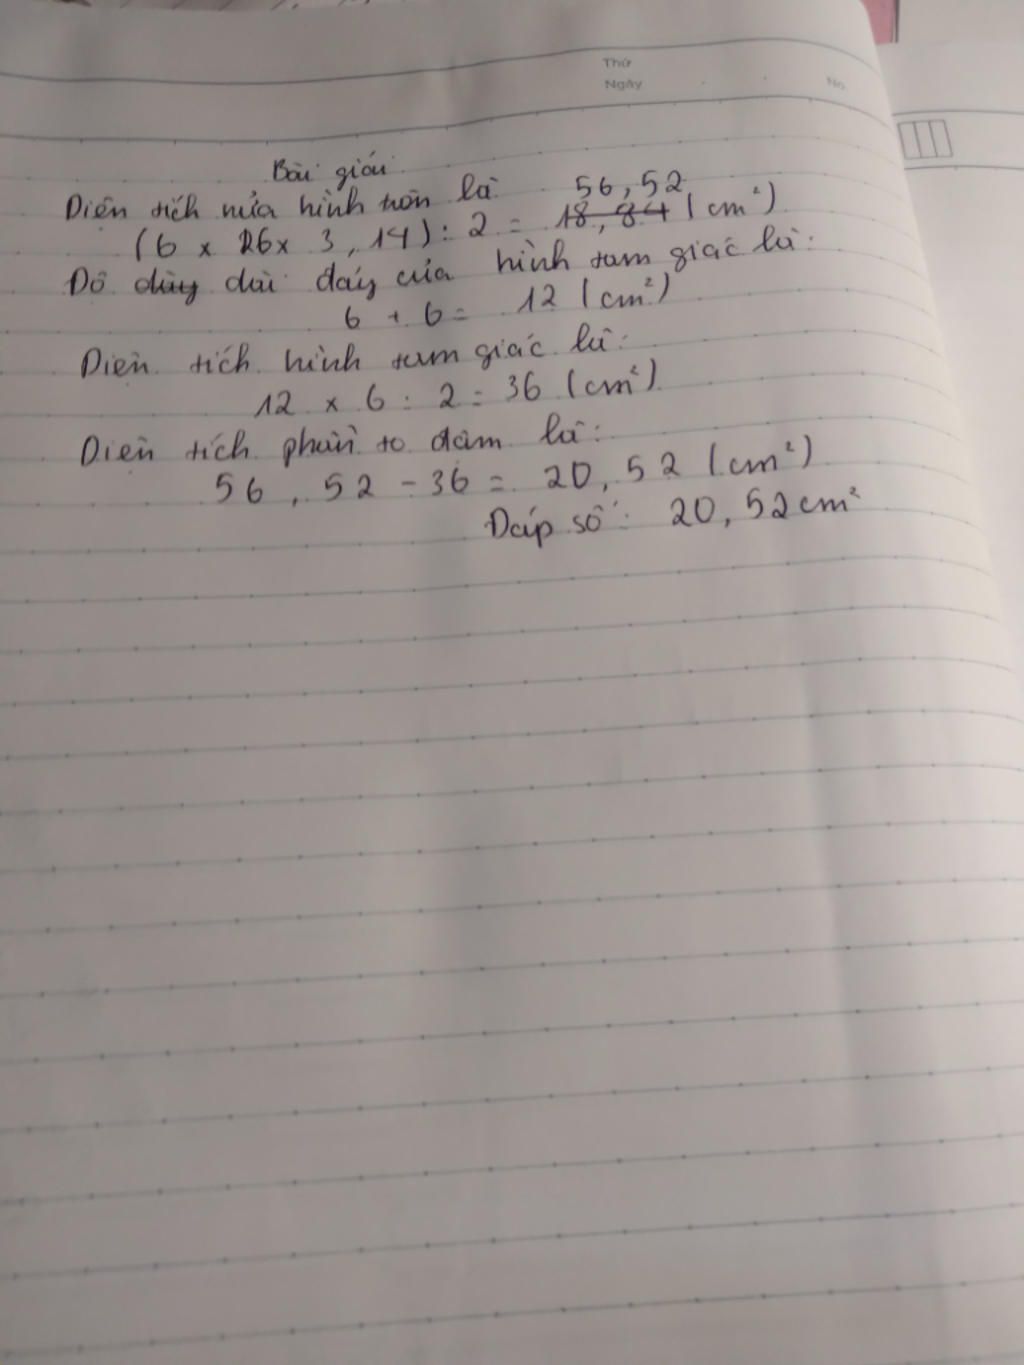 Thứ
Ngày
No
Bài giải
Diện tích nửa hình tròn là
56,52
(6 x 6 x 3,14) : 2 = 18,84 (cm²)
Độ dày dài đáy của hình tam giác là:
6 + 6 = 12 (cm²)
Diện tích hình tam giác là:
12 x 6 : 2 = 36 (cm²)
Diện tích phần tô đậm là:
56,52 - 36 = 20,52 (cm²)
Đáp số: 20,52cm²